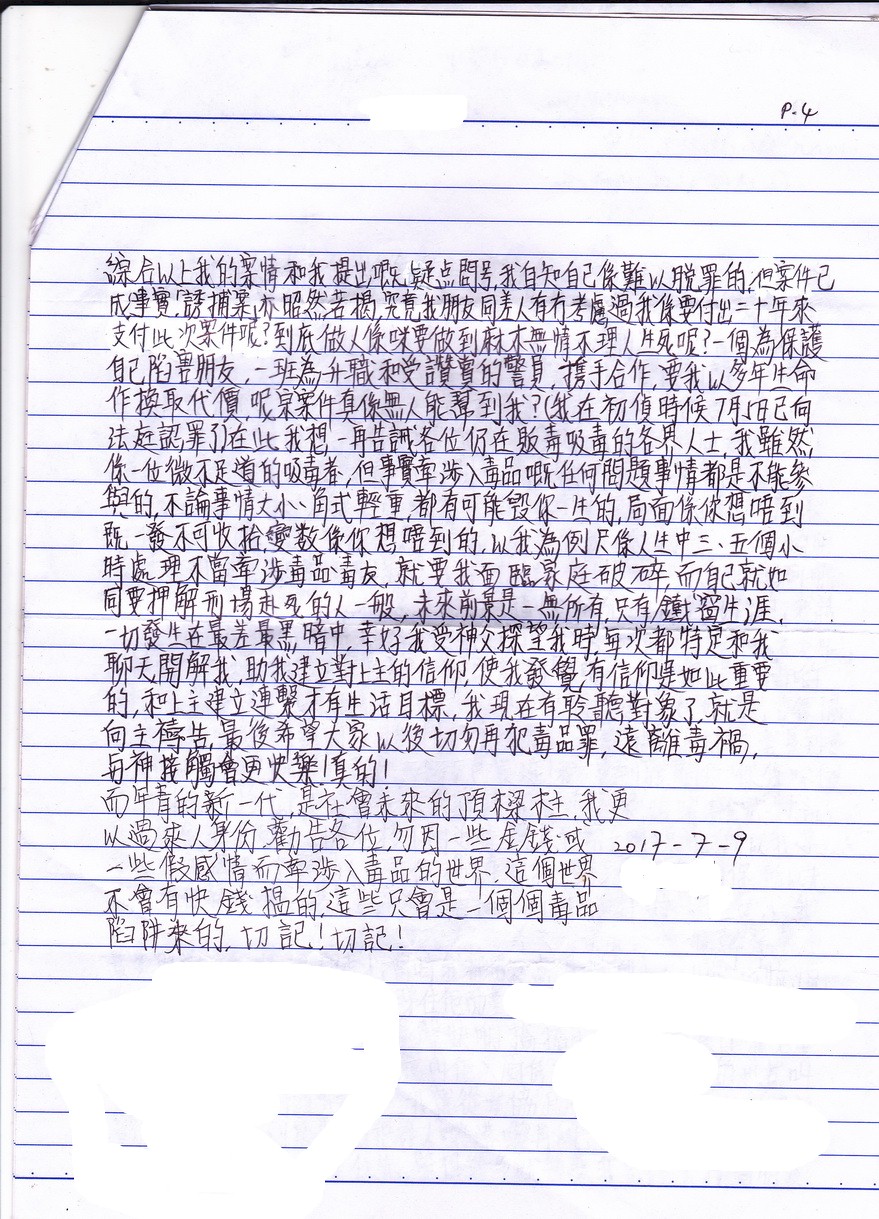 P.4
綜合以上我的案情和我提出嘅疑点問号,我自知自己係難以脱罪的,但案件已
成事實,誘捕案亦昭然若揭,究竟我朋友同差人有冇考慮過我係要付出二十年來
支付此次案件呢?到底做人係咪要做到麻木無情不理人生死呢?一個為保護
自己陷害朋友,一班為升職和受讚賞的警員,携手合作,要我以多年生命
作換取代價,呢宗案件真係無人能幫到我?(我在初偵時候7月5日已向
法庭認罪了)在此我想一再告誡各位仍在販毒吸毒的各界人士,我雖然
係一位微不足道的吸毒者,但事實牽涉入毒品嘅任何問題事情都是不能參
與的,不論事情大小、角式輕重,都有可能毀你一生的,局面係你想唔到
既,一發不可收拾,變数係你想唔到的,以我為例只係人生中三、五個小
時處理不當牽涉毒品毒友,就要我面臨家庭破碎,而自己就如
同要押解刑場赴死的人一般,未來前景是一無所有,只有鐵窗生涯,
一切發生在最差最黑暗中,幸好我受神父探望我時,每次都特定和我
聊天開解我,助我建立對上主的信仰,使我發覺有信仰是如此重要
的,和上主建立連繫才有生活目標,我現在有聆聽對象了,就是
向主禱告,最後希望大家以後切勿再犯毒品罪,遠離毒禍,
與神接觸會更快樂!真的!
而年青的新一代,是社會未來的頂樑柱,我更
以過來人身份,勸告各位,勿因一些金錢或 2017-7-9
一些假感情而牽涉入毒品的世界,這個世界
不會有快錢搵的,這些只會是一個個毒品
陷阱來的,切記!切記!